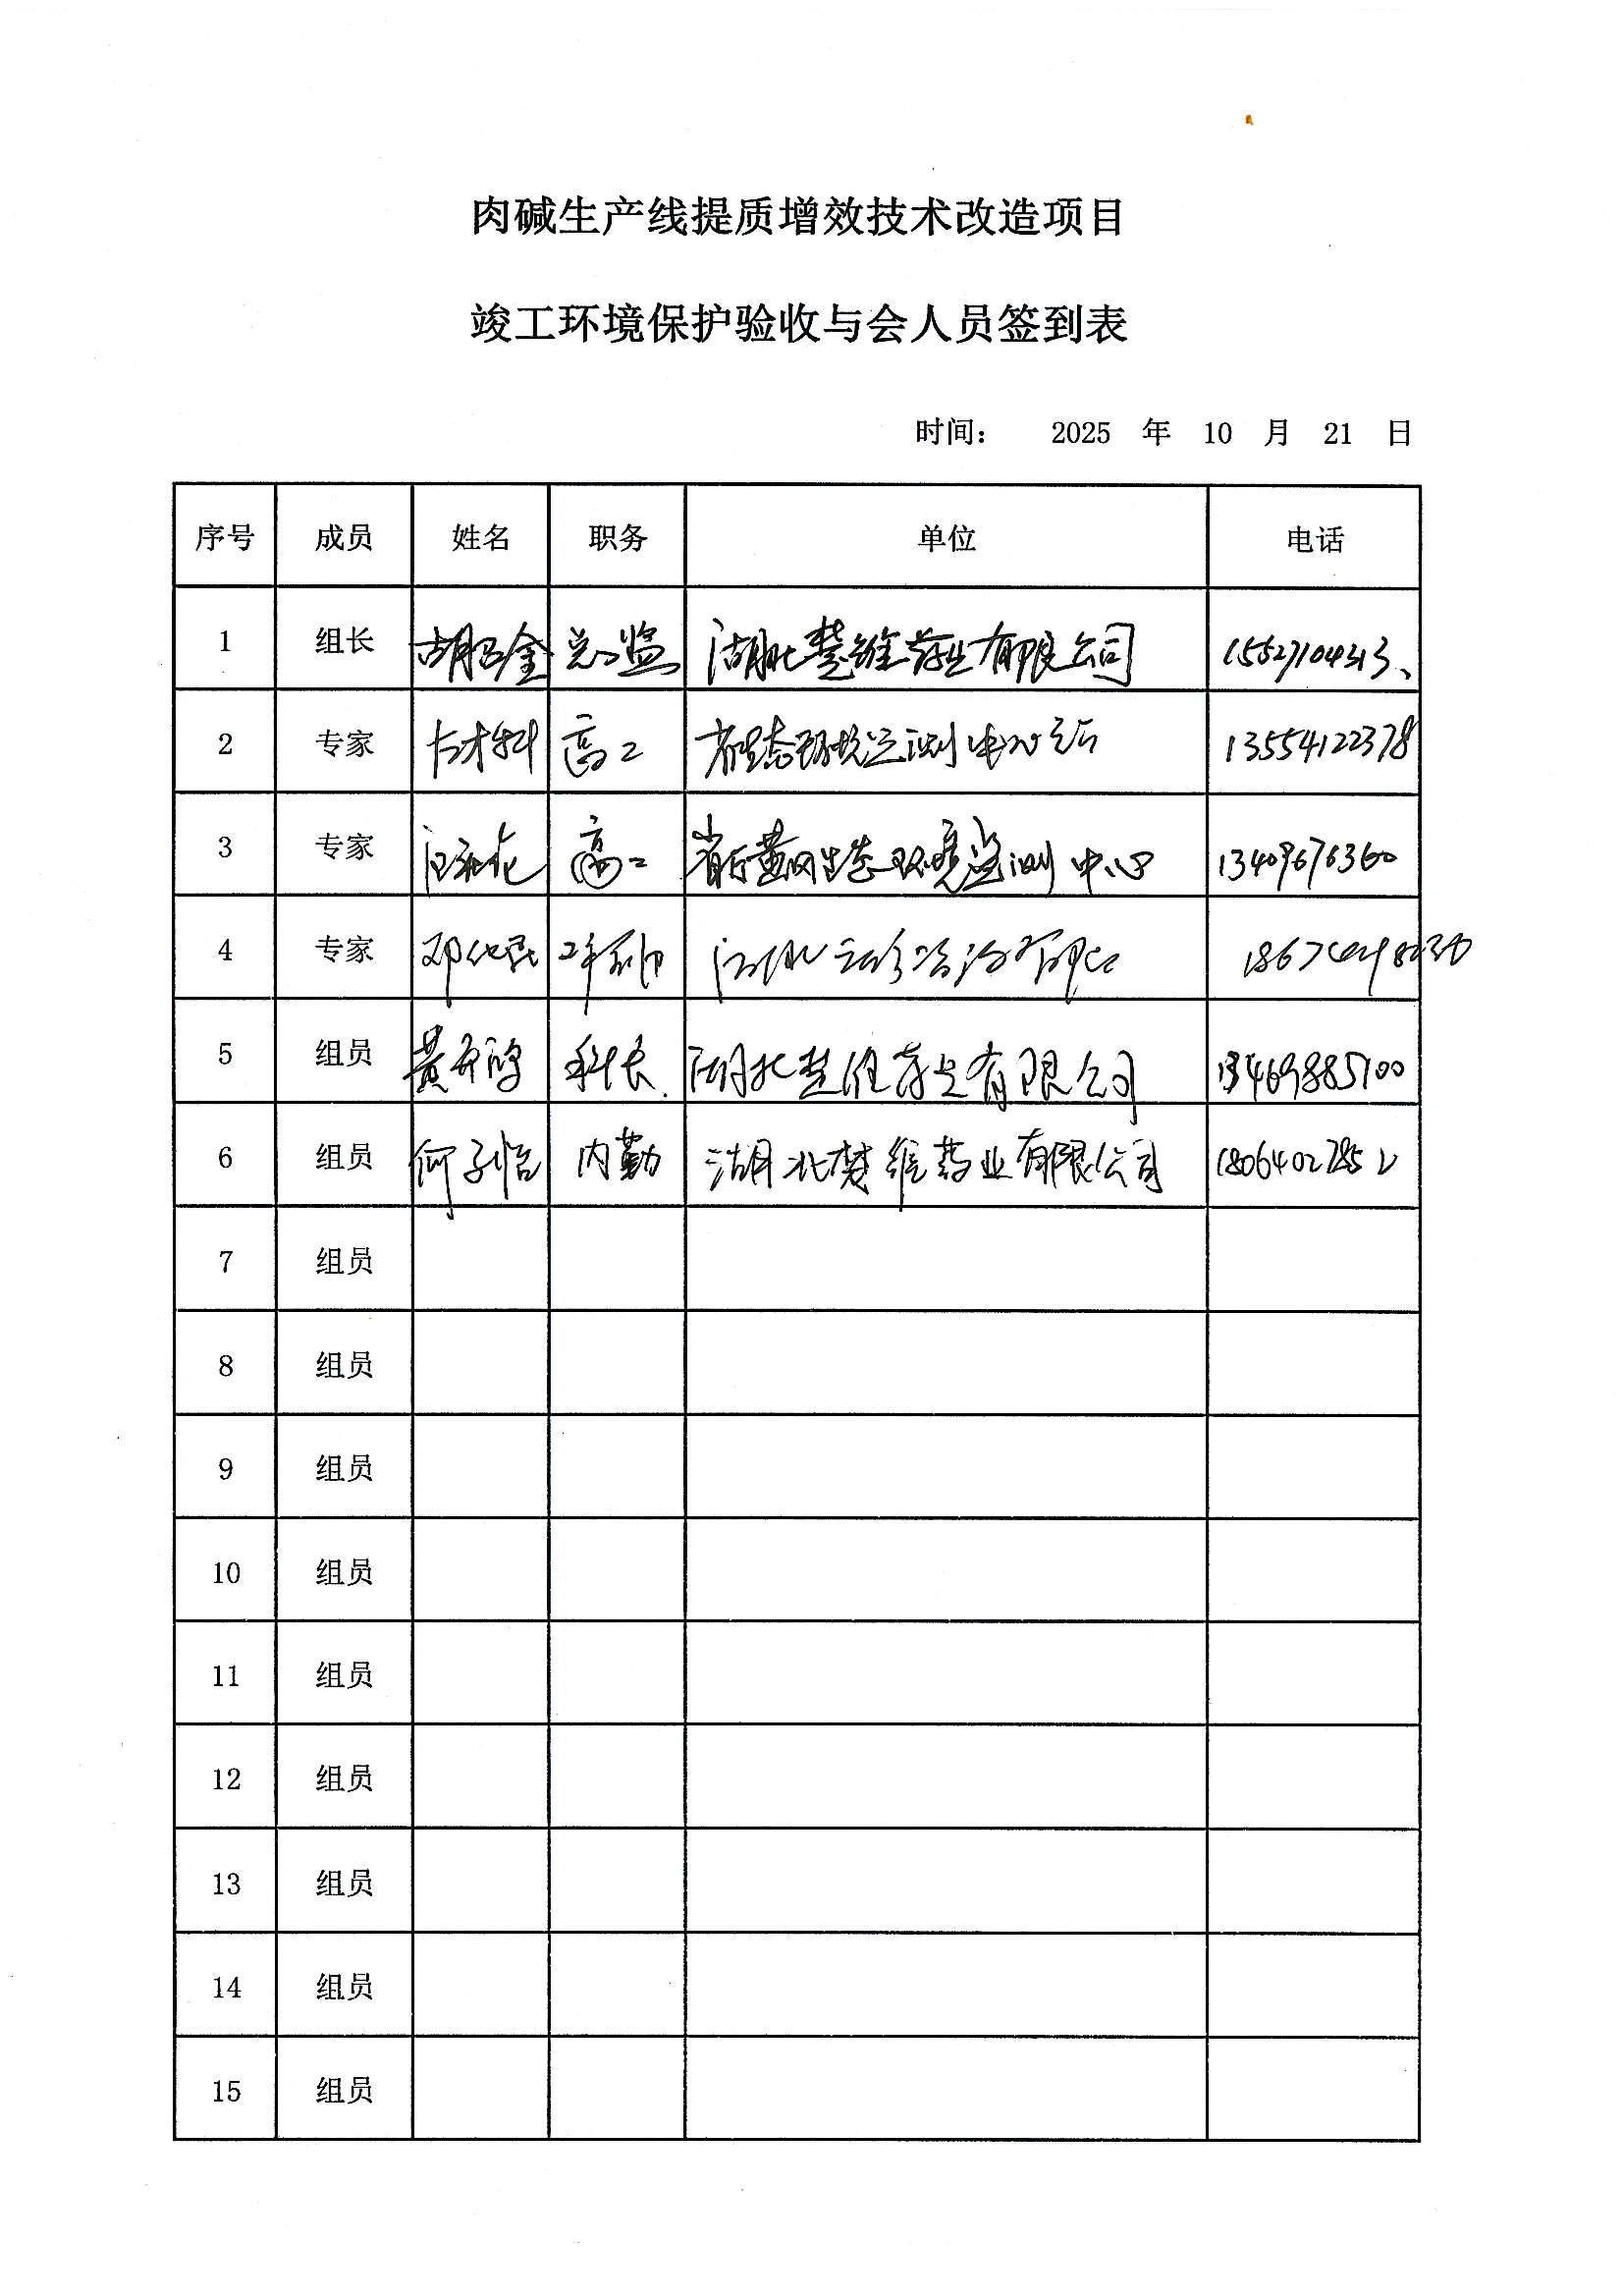 肉碱生产线提质增效技术改造项目
竣工环境保护验收与会人员签到表
时间： 2025 年 10 月 21 日
序号 成员 姓名 职务 单位 电话
1 组长 总监 湖北楚维药业有限公司 15527104313、
2 专家 高工 省生态环境监测中心站 13554122378
3 专家 高工 省厅黄冈生态环境监测中心 13409676360
4 专家
5 组员 科长 湖北楚维药业有限公司 13469885100
6 组员 何子怡 内勤 湖北楚维药业有限公司 18064027852
7 组员
8 组员
9 组员
10 组员
11 组员
12 组员
13 组员
14 组员
15 组员